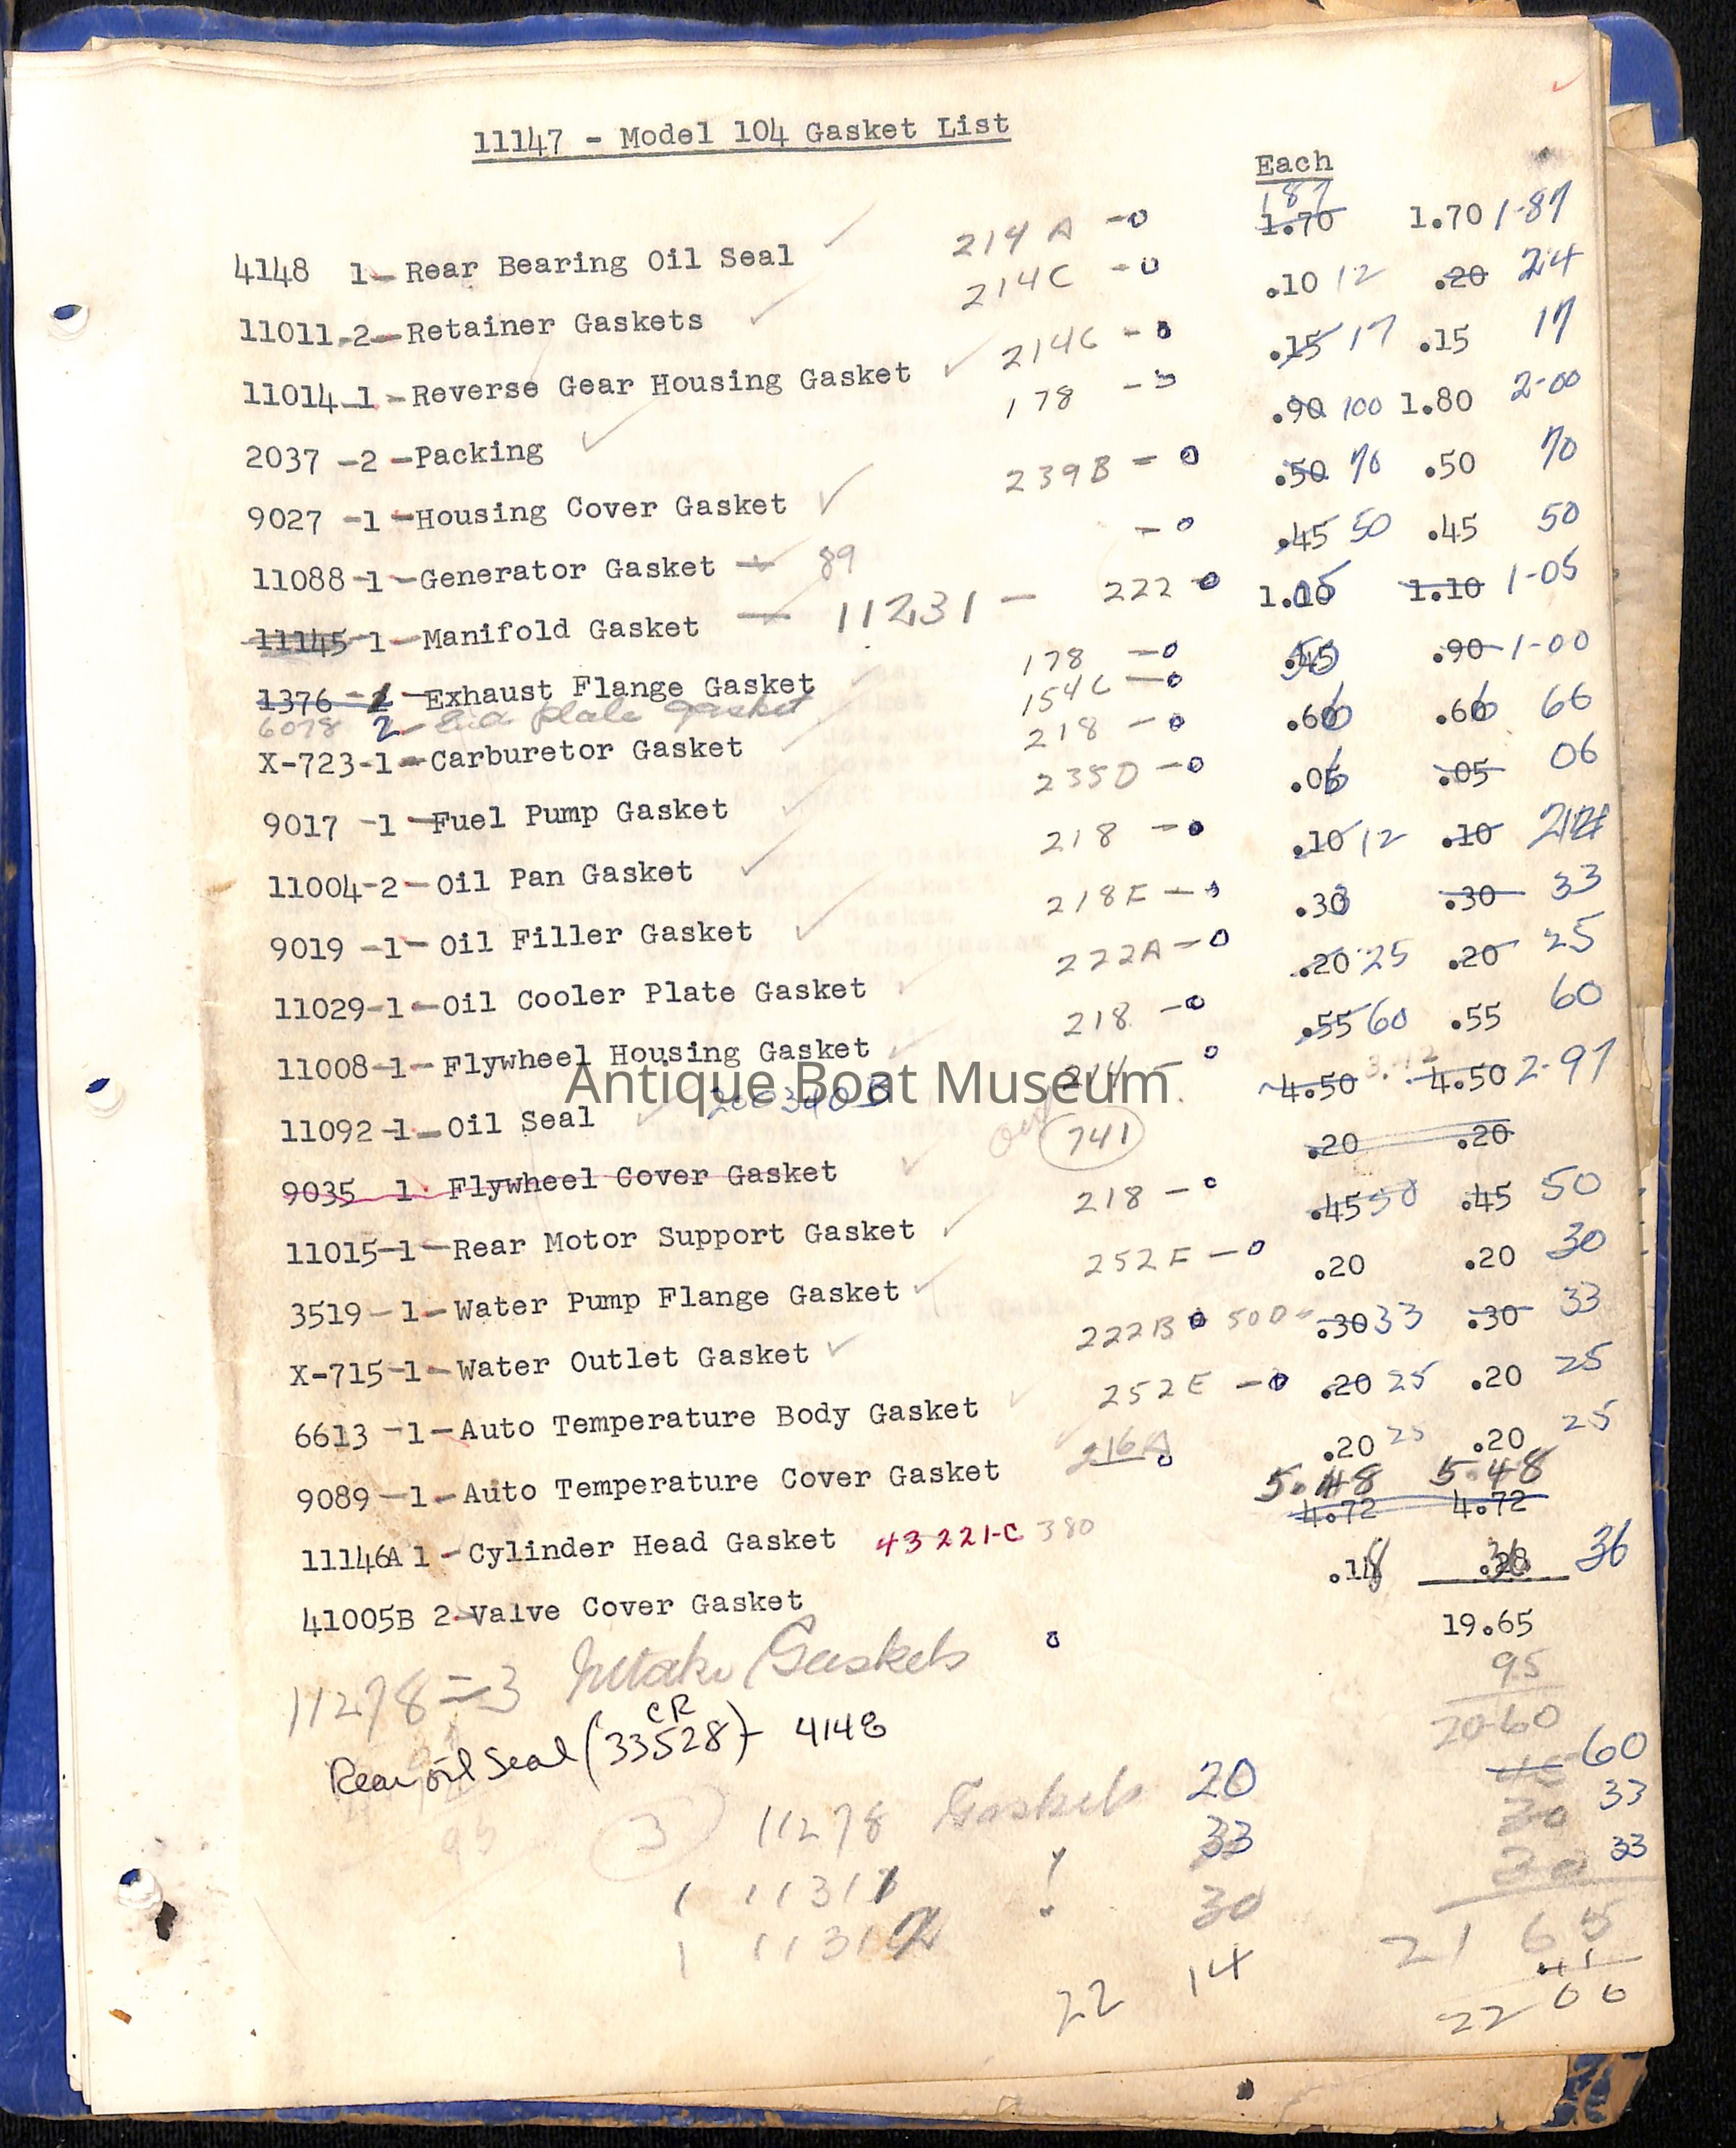 11147 - Model 104 Gasket List
Each
187
4148 1- Rear Bearing Oil Seal 214 A -0 1.70 1.70 1-87
11011-2- Retainer Gaskets 214C -0 .10 12 .20 24
11014-1- Reverse Gear Housing Gasket 214C - 0 .15 17 .15 17
2037 -2 -Packing 178 - .90 100 1.80 2-00
9027 -1 -Housing Cover Gasket 239B - 0 .50 70 .50 70
11088-1 -Generator Gasket 89 -0 .45 50 .45 50
11145-1- Manifold Gasket - 11231 - 222 -0 1.10 05 1.10 1-05
1376 -1 -Exhaust Flange Gasket 178 -0 .45 50 .90 1-00
6078 2- End plate gasket 154C -0
X-723-1-Carburetor Gasket 218 -0 .60 6 .60 6 66
9017 -1 -Fuel Pump Gasket 235D -0 .05 6 .05 06
11004-2- Oil Pan Gasket 218 -0 .10 12 .10 24
9019 -1- Oil Filler Gasket 218E - .30 3 .30 33
11029-1-Oil Cooler Plate Gasket 222A -0 .20 25 .20 25
11008-1- Flywheel Housing Gasket 218 -0 .55 60 .55 60
11092-1- Oil Seal 214 - 0 4.50 4.50 2-97
9035 1- Flywheel Cover Gasket 741 .20 .20
11015-1-Rear Motor Support Gasket 218 -0 .45 50 .45 50
3519 -1- Water Pump Flange Gasket 252E -0 .20 .20 30
X-715-1- Water Outlet Gasket 222B 0 500 .30 33 .30 33
6613 -1-Auto Temperature Body Gasket 252E -0 .20 25 .20 25
9089 -1- Auto Temperature Cover Gasket 216A 0 .20 25 .20 25
5.48 5.48
11146A 1 -Cylinder Head Gasket 43221-C 380 4.72 4.72
41005B 2-Valve Cover Gasket .14 8 .28 36 36
19.65
11278 = 3 Intake Gaskets 0 95
20-60
CR
Rear oil Seal (33528)- 4148
60
3 11278 Gaskets 20 30 33
1 11311 33 30 33
1 11312 30 21 65
41
22 14 22 06
Antique Boat Museum